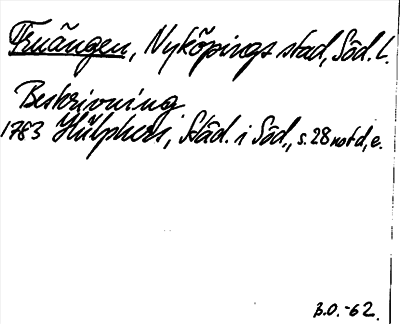 Fruängen, Nyköpings stad, Söd. l.
Beskrivning
1783 Hülphers, Städ. i Söd., s. 28 not d, e.
B.O. -62.